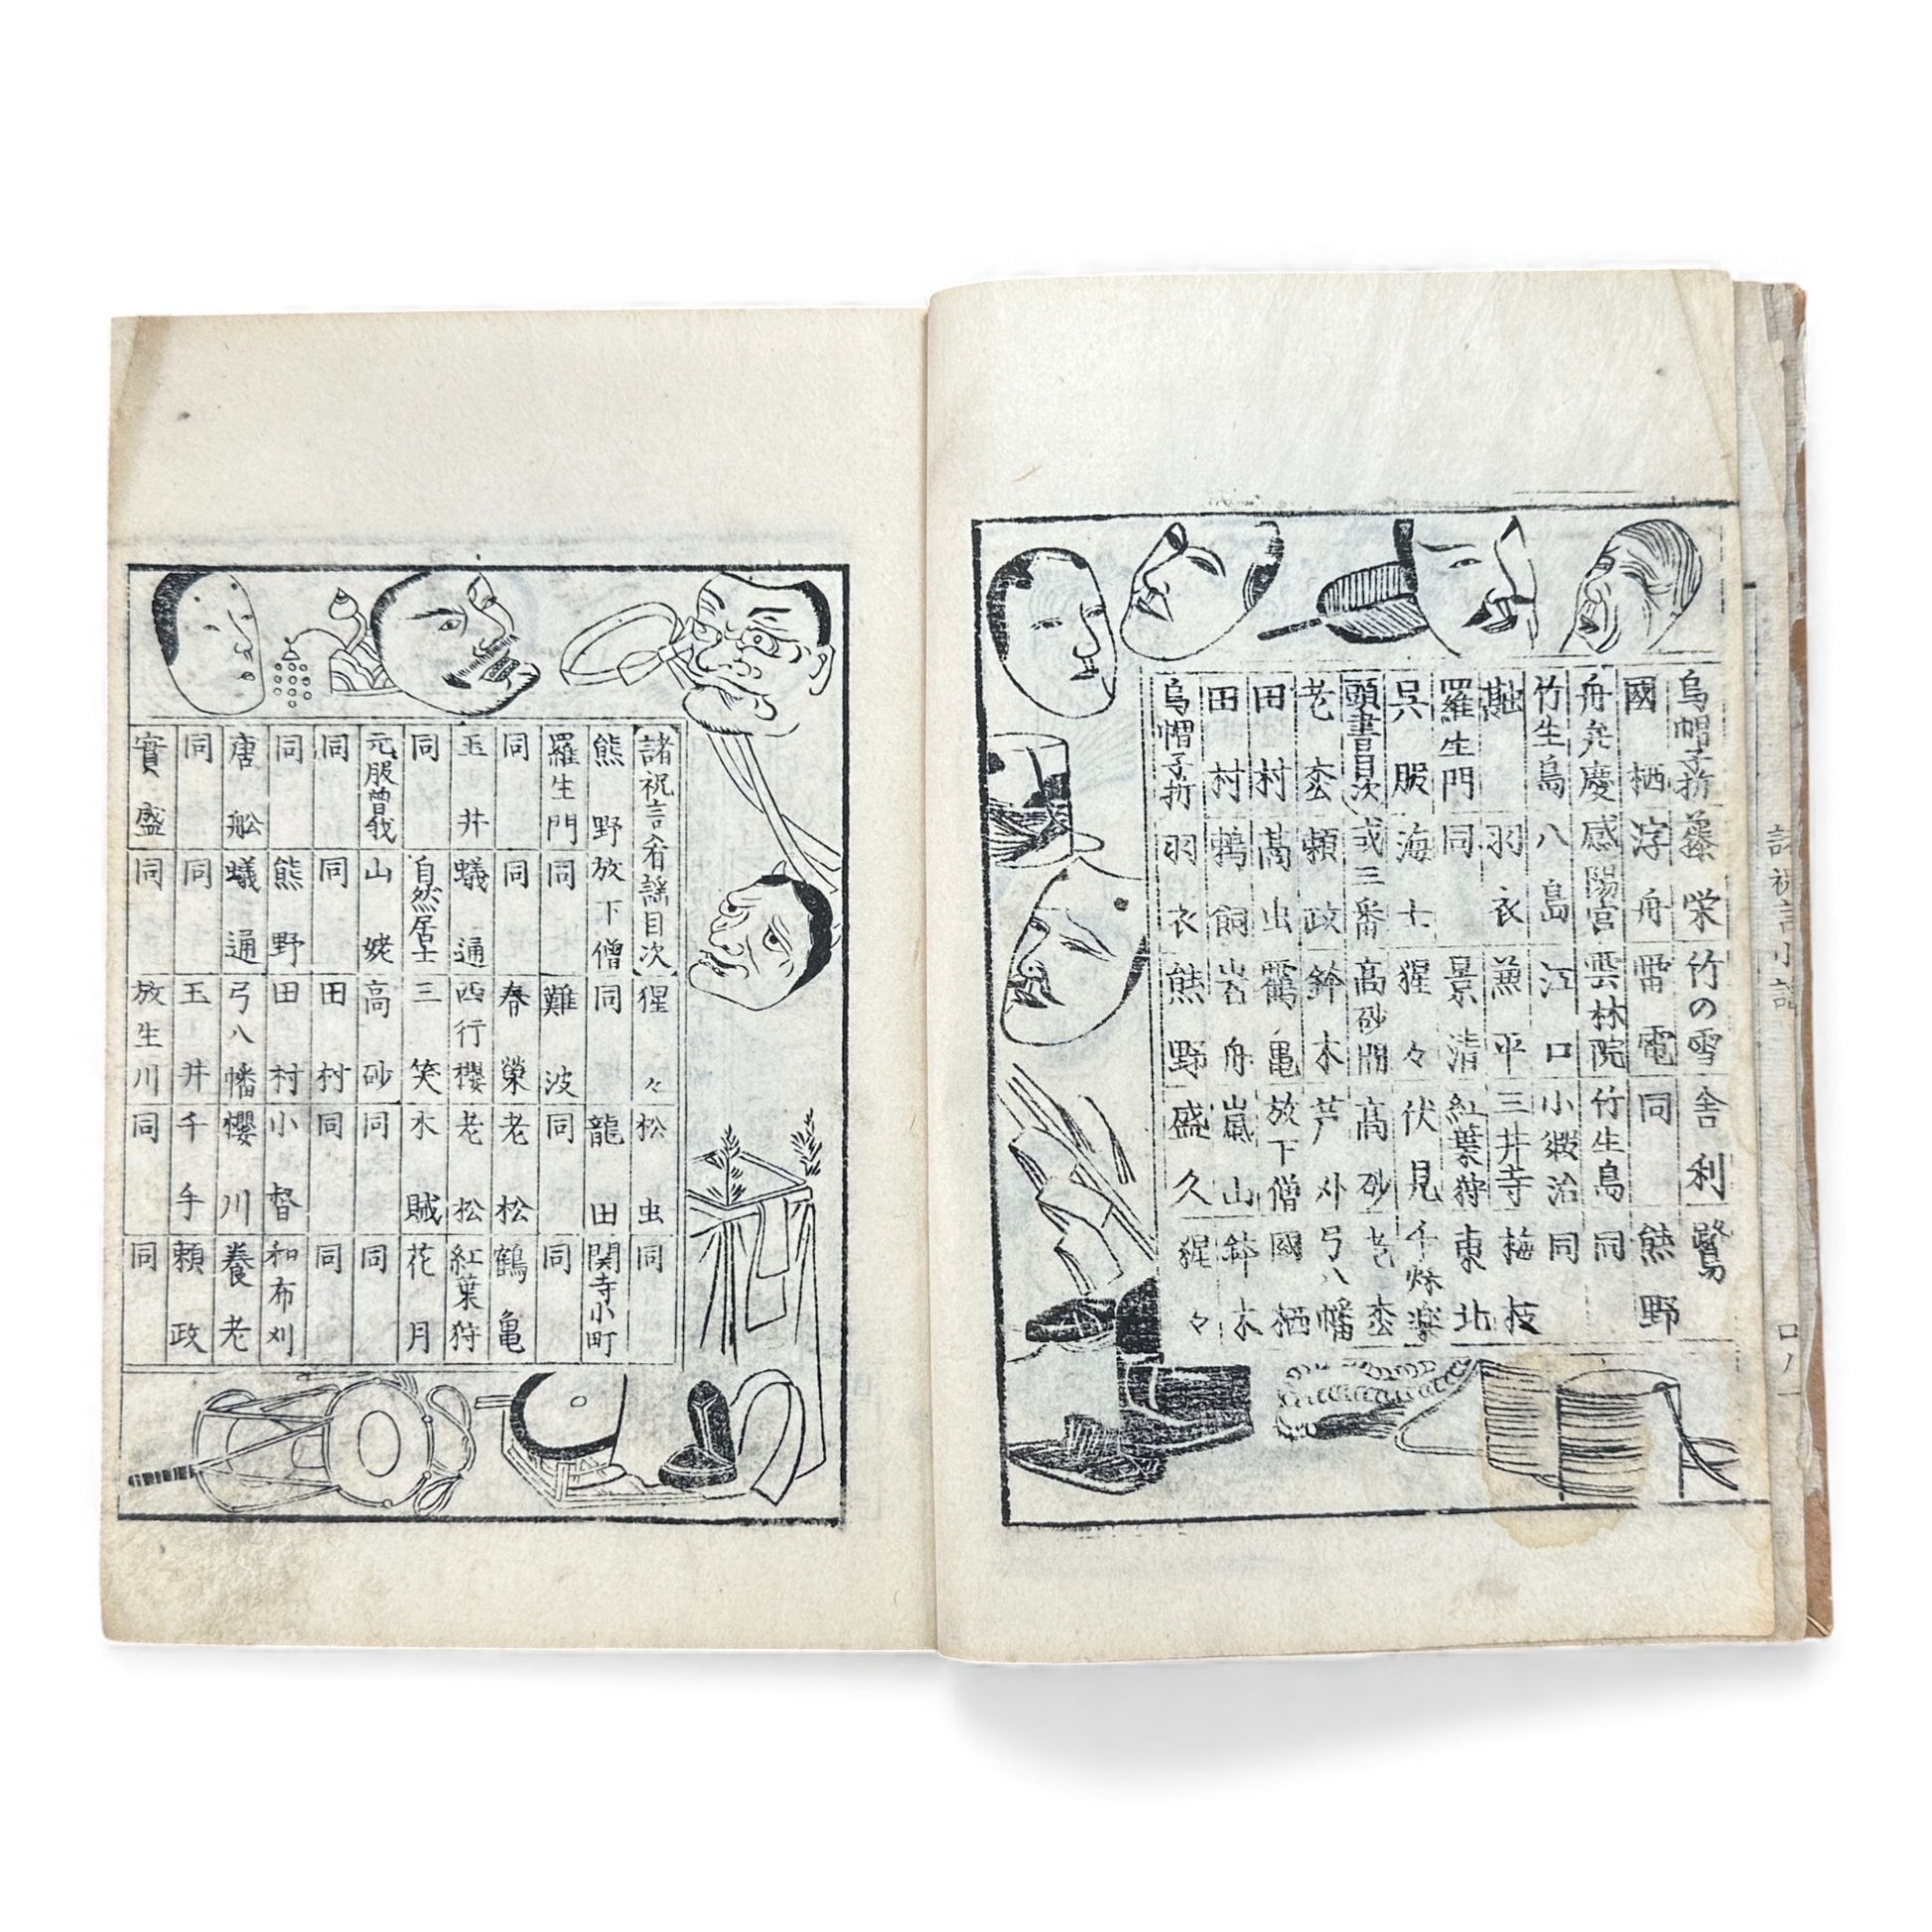 烏帽子折 藤栄 竹の雪 舎利 鵞
國栖 浮舟 雷電 同 熊野
舟弁慶 感陽宮 雲林院 竹生島 同
竹生島 八島 江口 小鍛治 同
羽衣 兼平 三井寺 梅枝
羅生門 同 景清 紅葉狩 東北
呉服 海士 猩々 伏見 千秋楽
頭書目次 或三番 高砂開 高砂 老松
老松 頼政 鈴木 芦刈 弓八幡
田村 高虫 鶴亀 放下僧 國栖
田村 鵜飼 岩舟 嵐山 鈴木
烏帽子折 羽衣 熊野 盛久 猩々
諸祝言肴謡目次 猩々 松虫 同
熊野 放下僧 同 龍田 関寺小町
羅生門 同 難波 同 同
同 同 春榮 老松 鶴亀
玉井 蟻通 西行櫻 老松 紅葉狩
同 自然居士 三笑 木賊 花月
元服曽我 山姥 高砂 同 同
同 同 田村 同 同
同 熊野 田村 小督 和布刈
唐舩 蟻通 弓八幡 櫻川 養老
同 同 玉井 千手 頼政
實盛 同 放生川 同 同